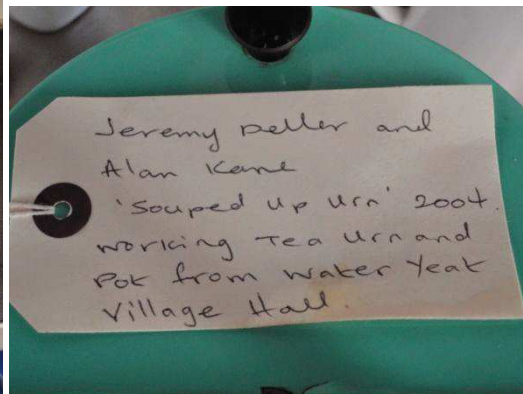 Jeremy Deller and
Alan Kane
'Souped Up Urn' 2004.
Working Tea Urn and
Pot from Water Yeat
Village Hall.